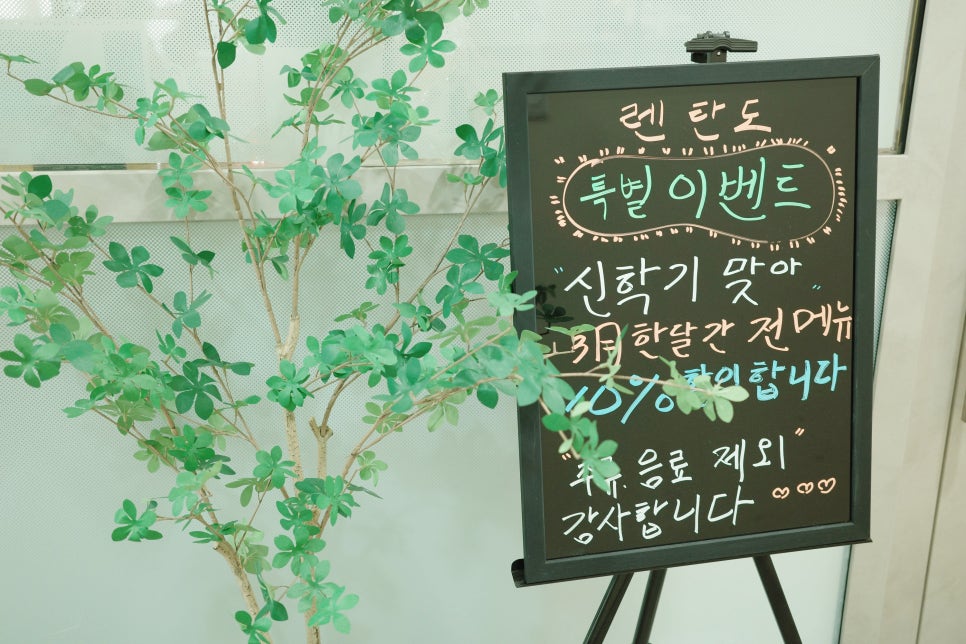 렌탄도
특별 이벤트
"신학기 맞아"
3月 한달간 전메뉴
10% 할인합니다
"주류. 음료 제외"
감사합니다 ♡♡♡